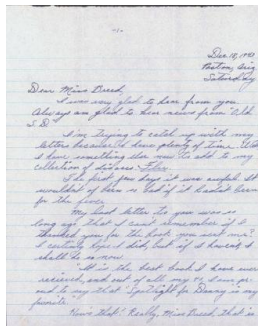 -1-
Dec. 18, 1942
Poston, Ariz
Saturday
Dear Miss Breed,
I was very glad to hear from you.
Always am glad to hear news from Old
S.D.
I'm trying to catch up with my
letters because I have plenty of time.
I have something else now to add to my
collection of disease - Flu.
The first few days it was awful. It
wouldn't of been so bad if it hadn't been
for the fever.
My last letter to you was so
long ago that I can't remember if I
thanked you for the book you sent me?
I certainly hope I did, but if I haven't I
shall do so now.
"It is the best book I have ever
received, and out of all my
to say that "Spotlight for Danny is my
favorite.
News that! Really, Miss Breed, that is